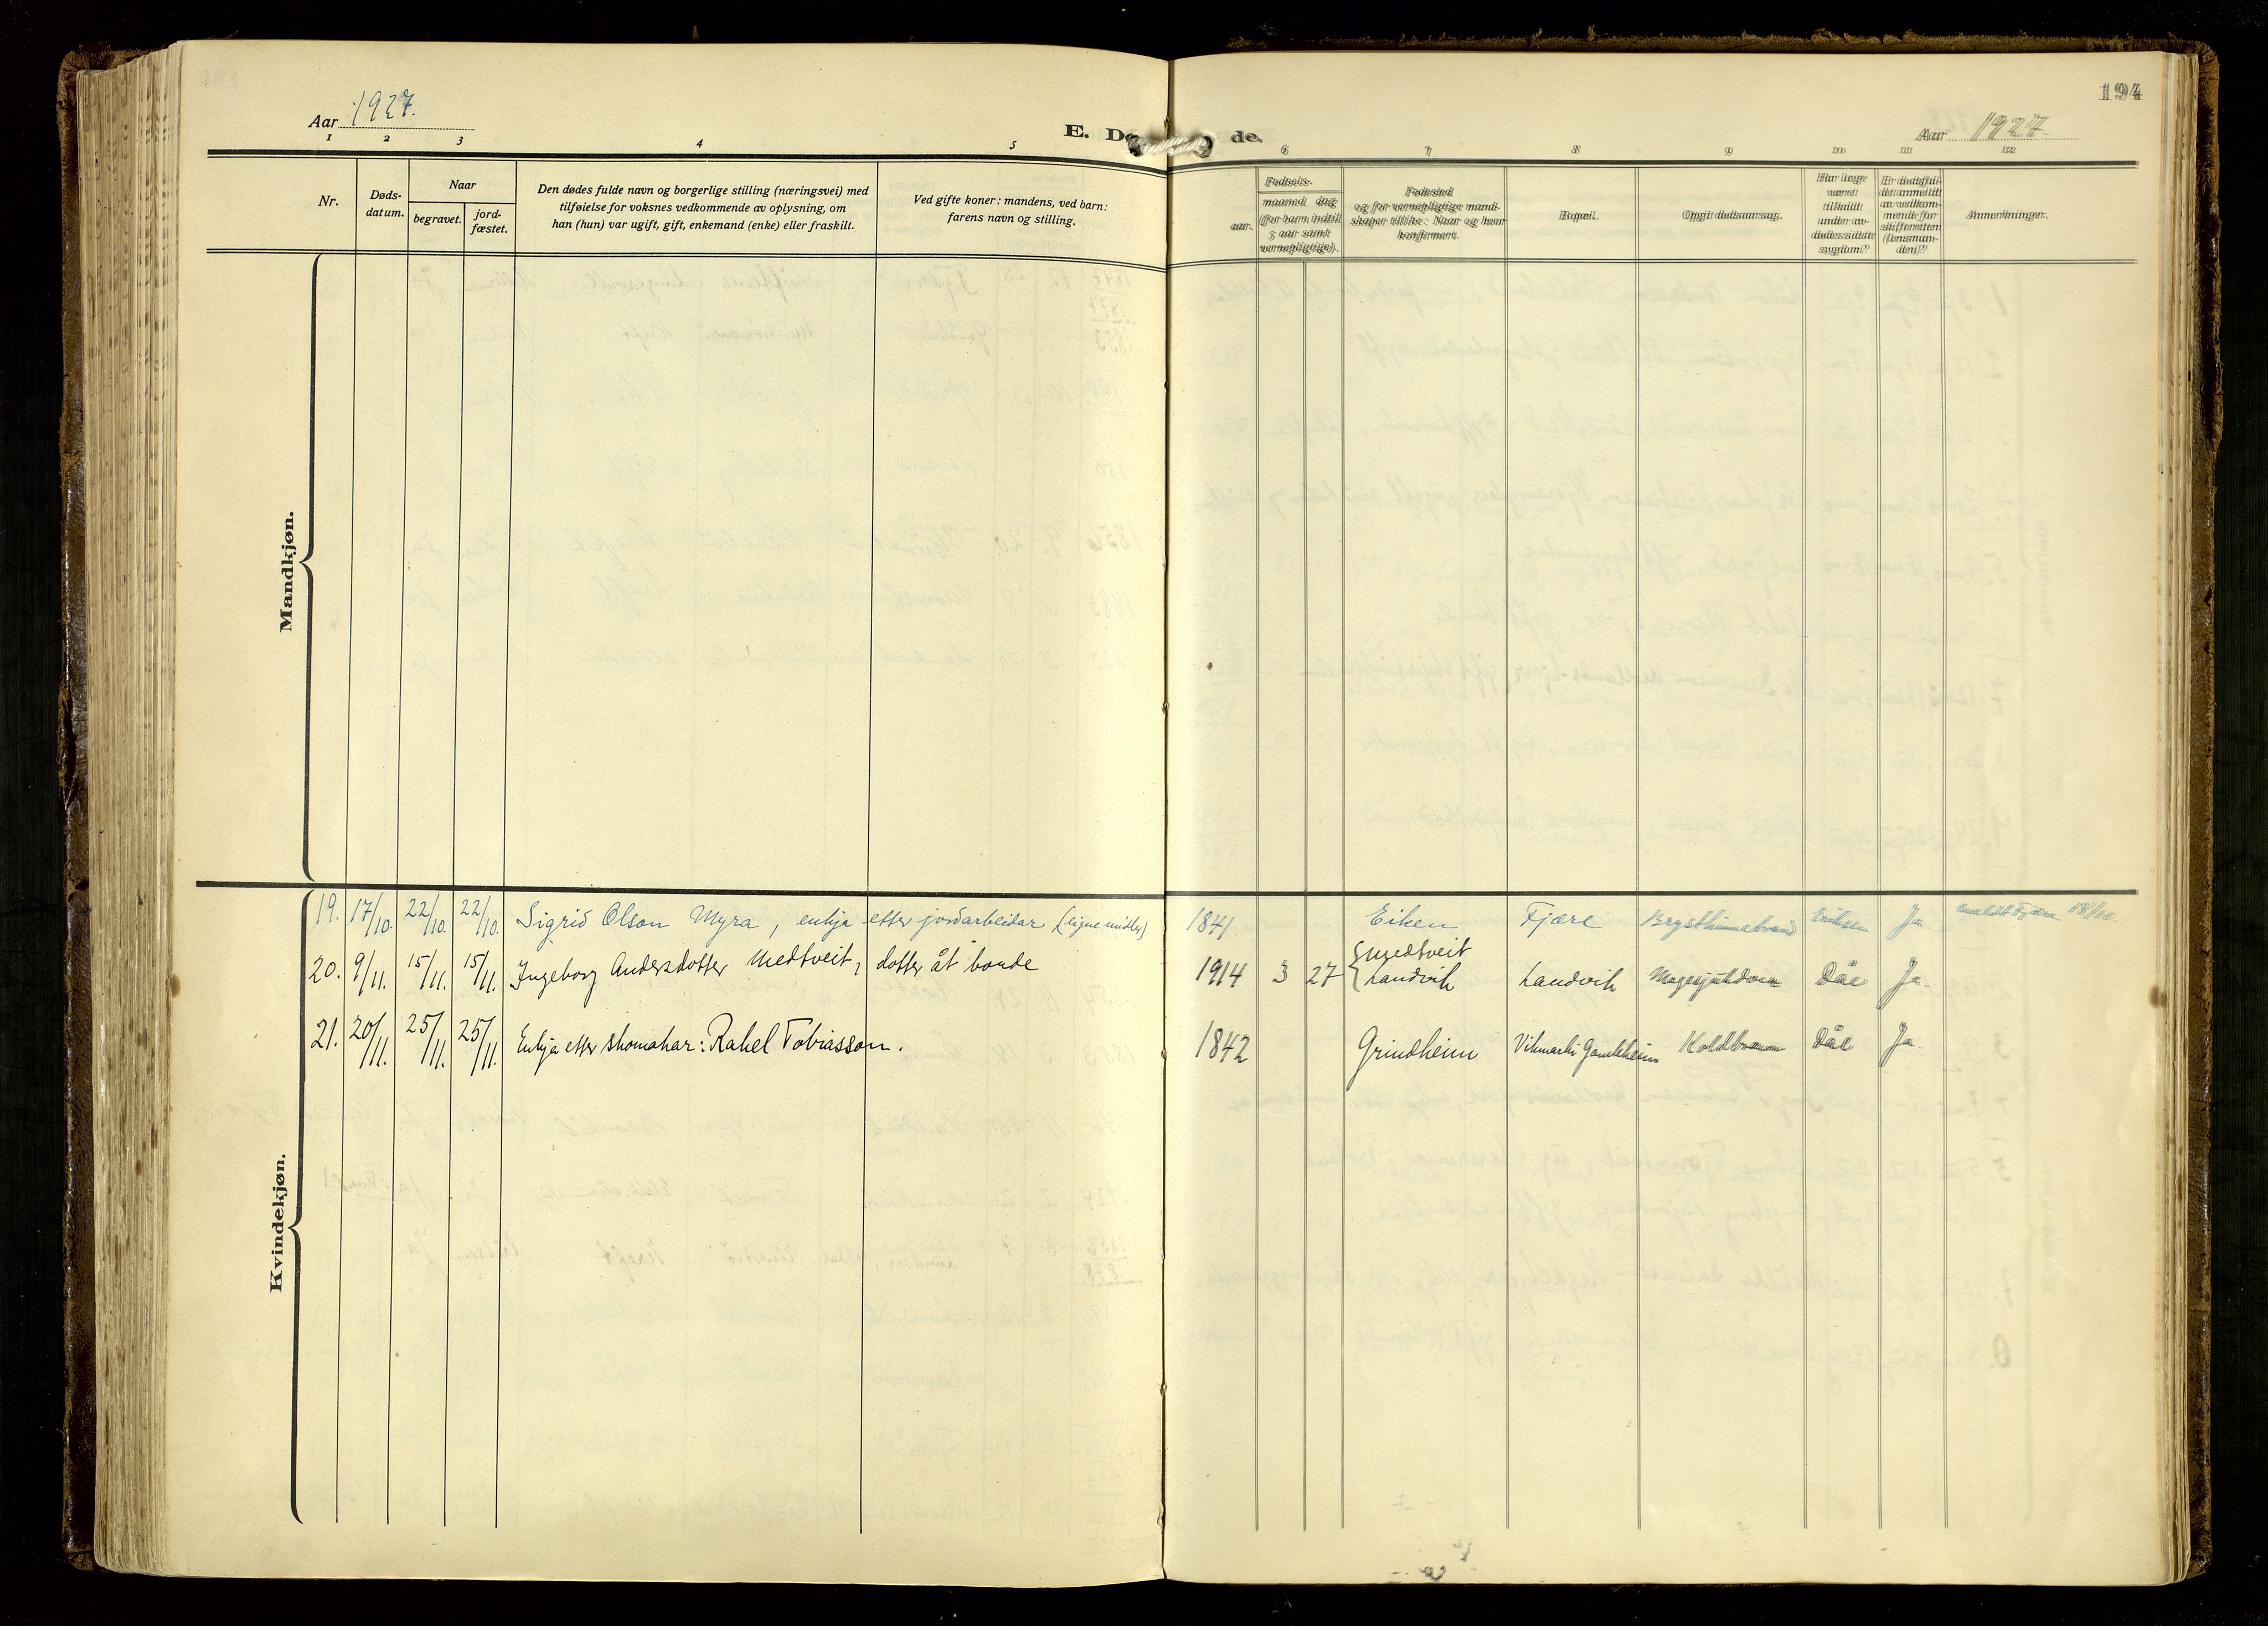 194
Aar 1927.
E. Dø de.
Aar 1927
1 2 3 4 5 6 7 8 9 10 11 12
Nr.
Døds-
datum.
Naar
begravet.
jord-
fæstet.
Den dødes fulde navn og borgerlige stilling (næringsvei) med
tilføielse for voksnes vedkommende av oplysning, om
han (hun) var ugift, gift, enkemand (enke) eller fraskilt.
Ved gifte koner: mandens, ved barn:
farens navn og stilling.
Fødsels-
aar.
maaned dag
(for barn indtil
5 aar samt
vernepligtige).
Fødested
og for vernepligtige mand-
skaper tillike: Naar og hvor
konfirmert.
Bopæl.
Opgit dødsaarsag.
Har læge
været
tilkaldt
under av-
dødes sidste
sygdom?
Er dødsfal-
det anmeldt
av vedkom-
mende for
skifteretten
(lensman-
den)?
Anmerkninger.
Mandkjøn.
Kvindekjøn.
19. 17/10. 22/10. 22/10. Sigrid Olson Myra, enkja etter jordarbeidar (eigne midler) 1841 Eiken Fjære Brysthinnebrand Eriksen Ja
20. 9/11. 15/11. 15/11. Ingeborg Andersdotter Medtveit, dotter åt bonde 1914 3 27 Medtveit
Landvik Landvik Dåe Ja.
21. 20/11. 25/11. 25/11. Enkja etter skomakar: Rakel Tobiasson. 1842 Grindheim Vikmarki Gamleheim Koldbrann Dåe Ja